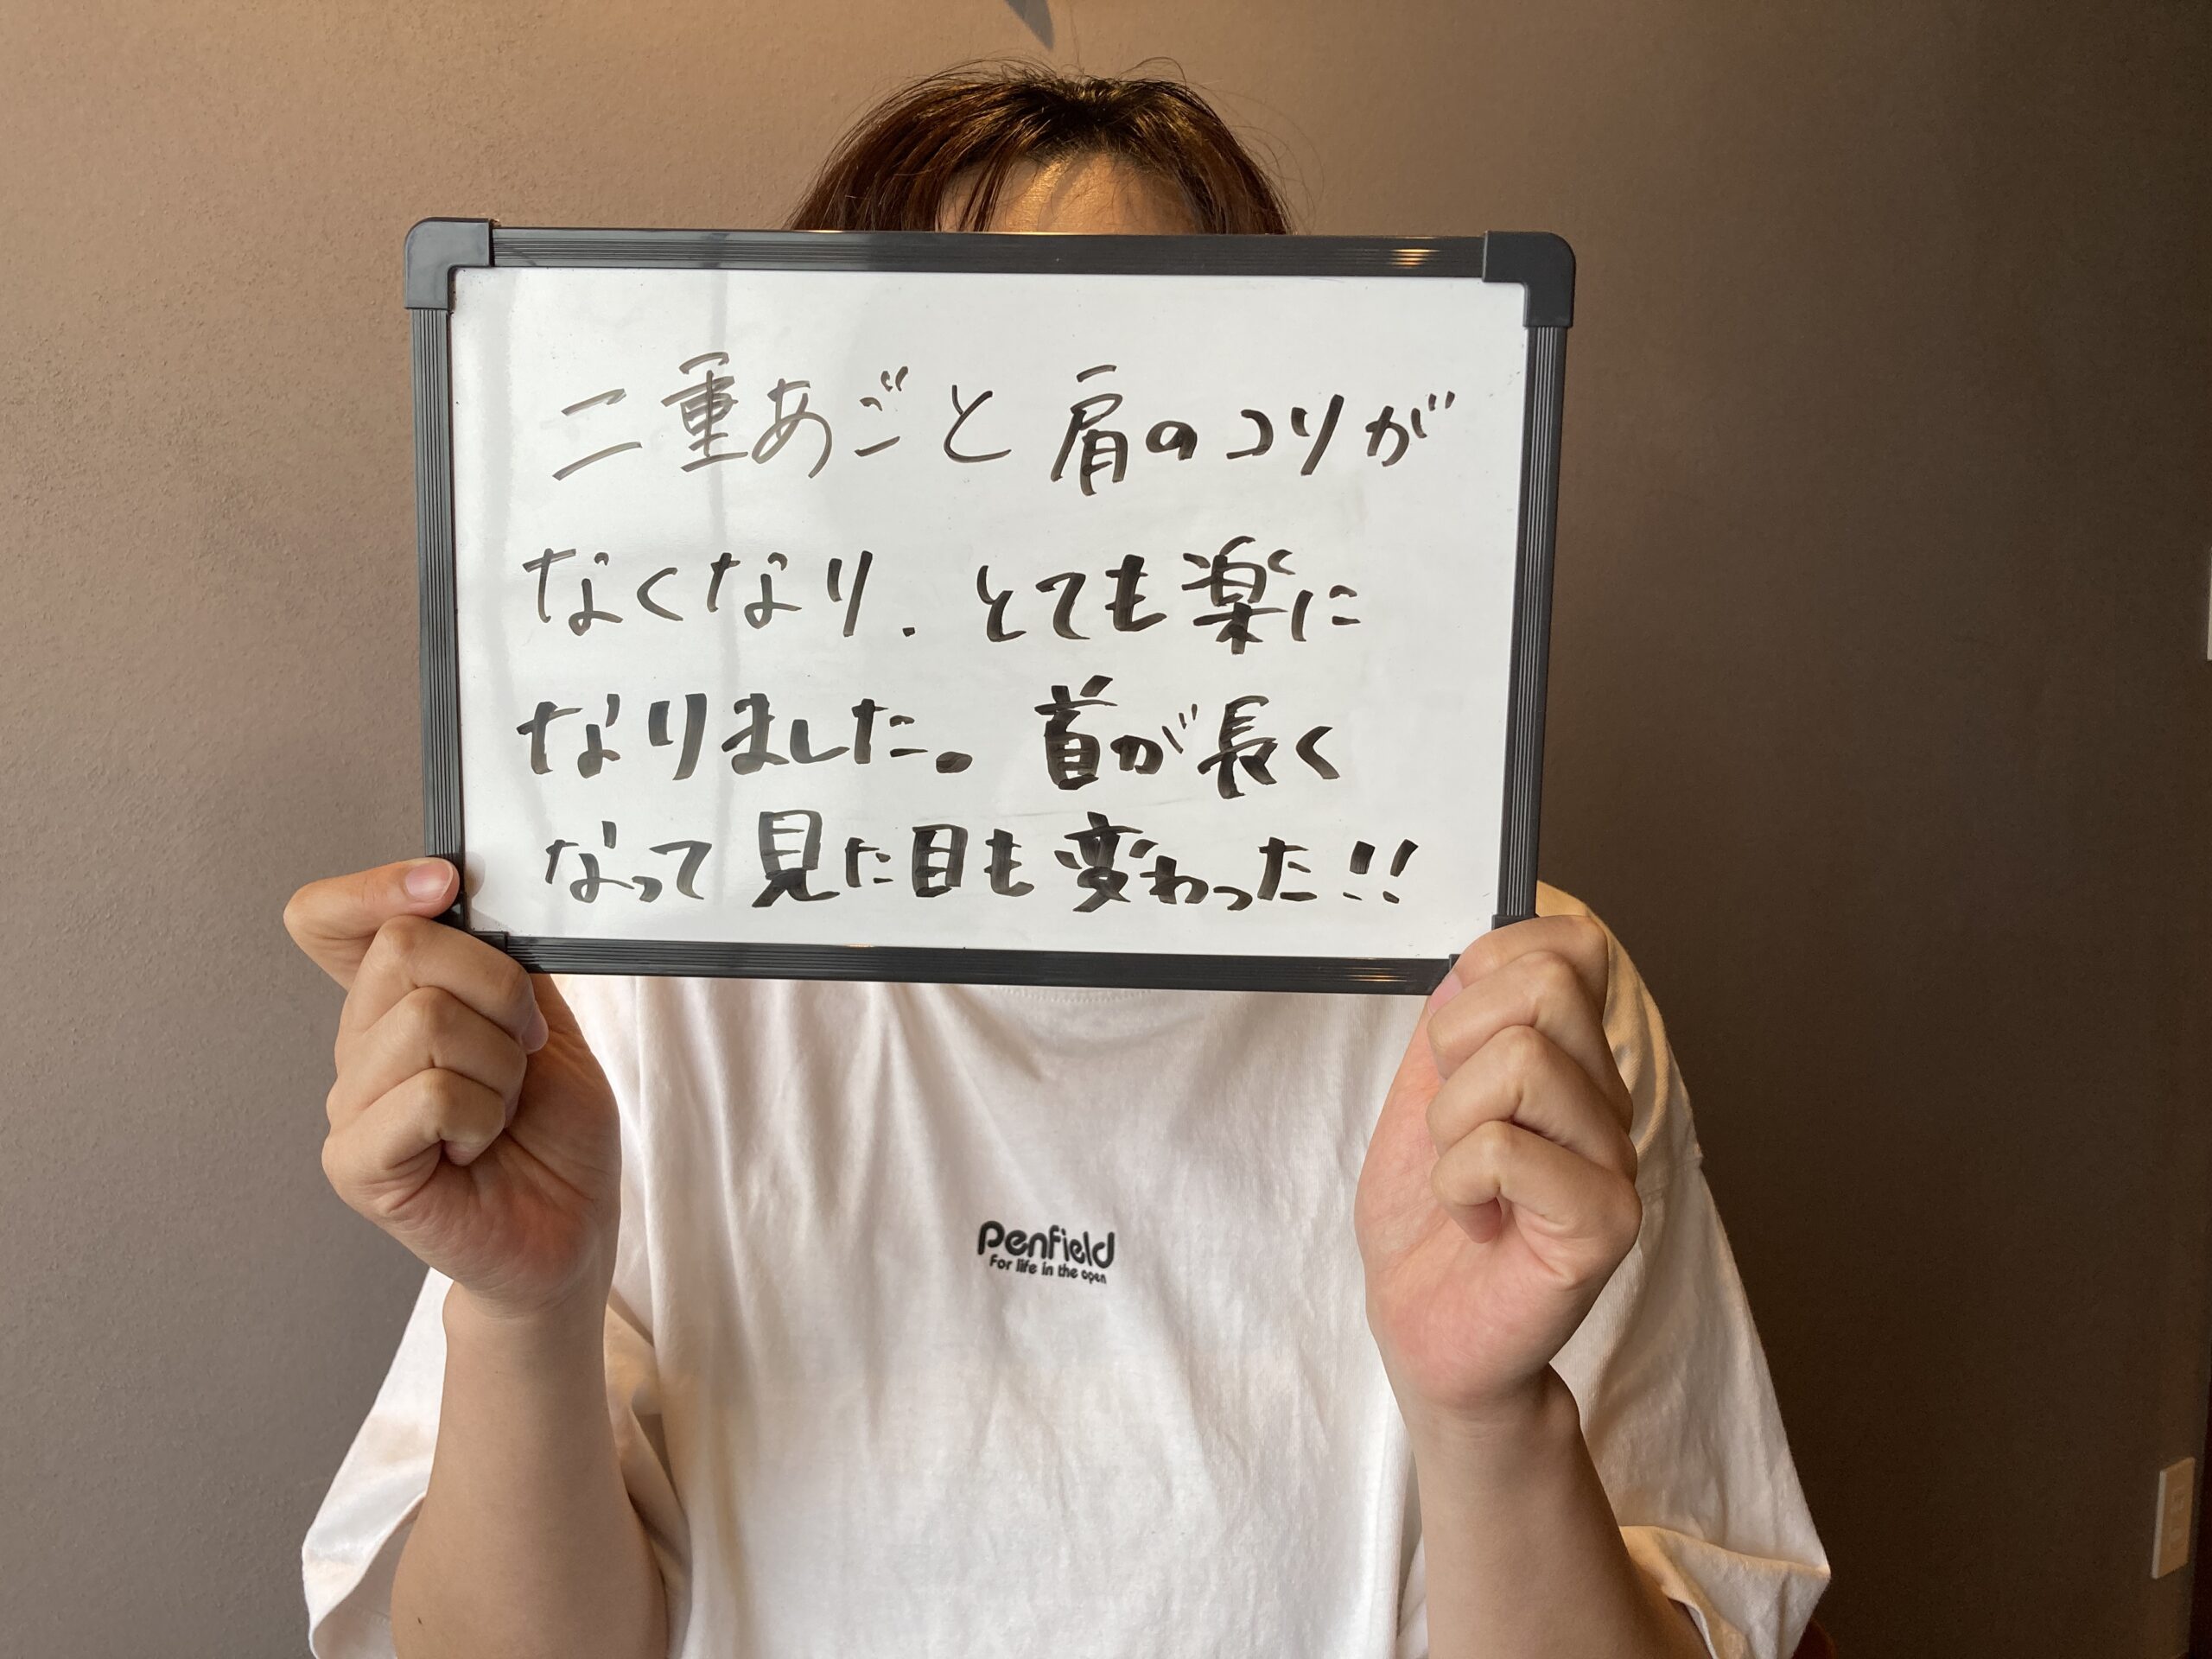 二重あごと肩のコリが
なくなり．とても楽に
なりました。首が長く
なって見た目も変わった!!
Penfield
For life in the open